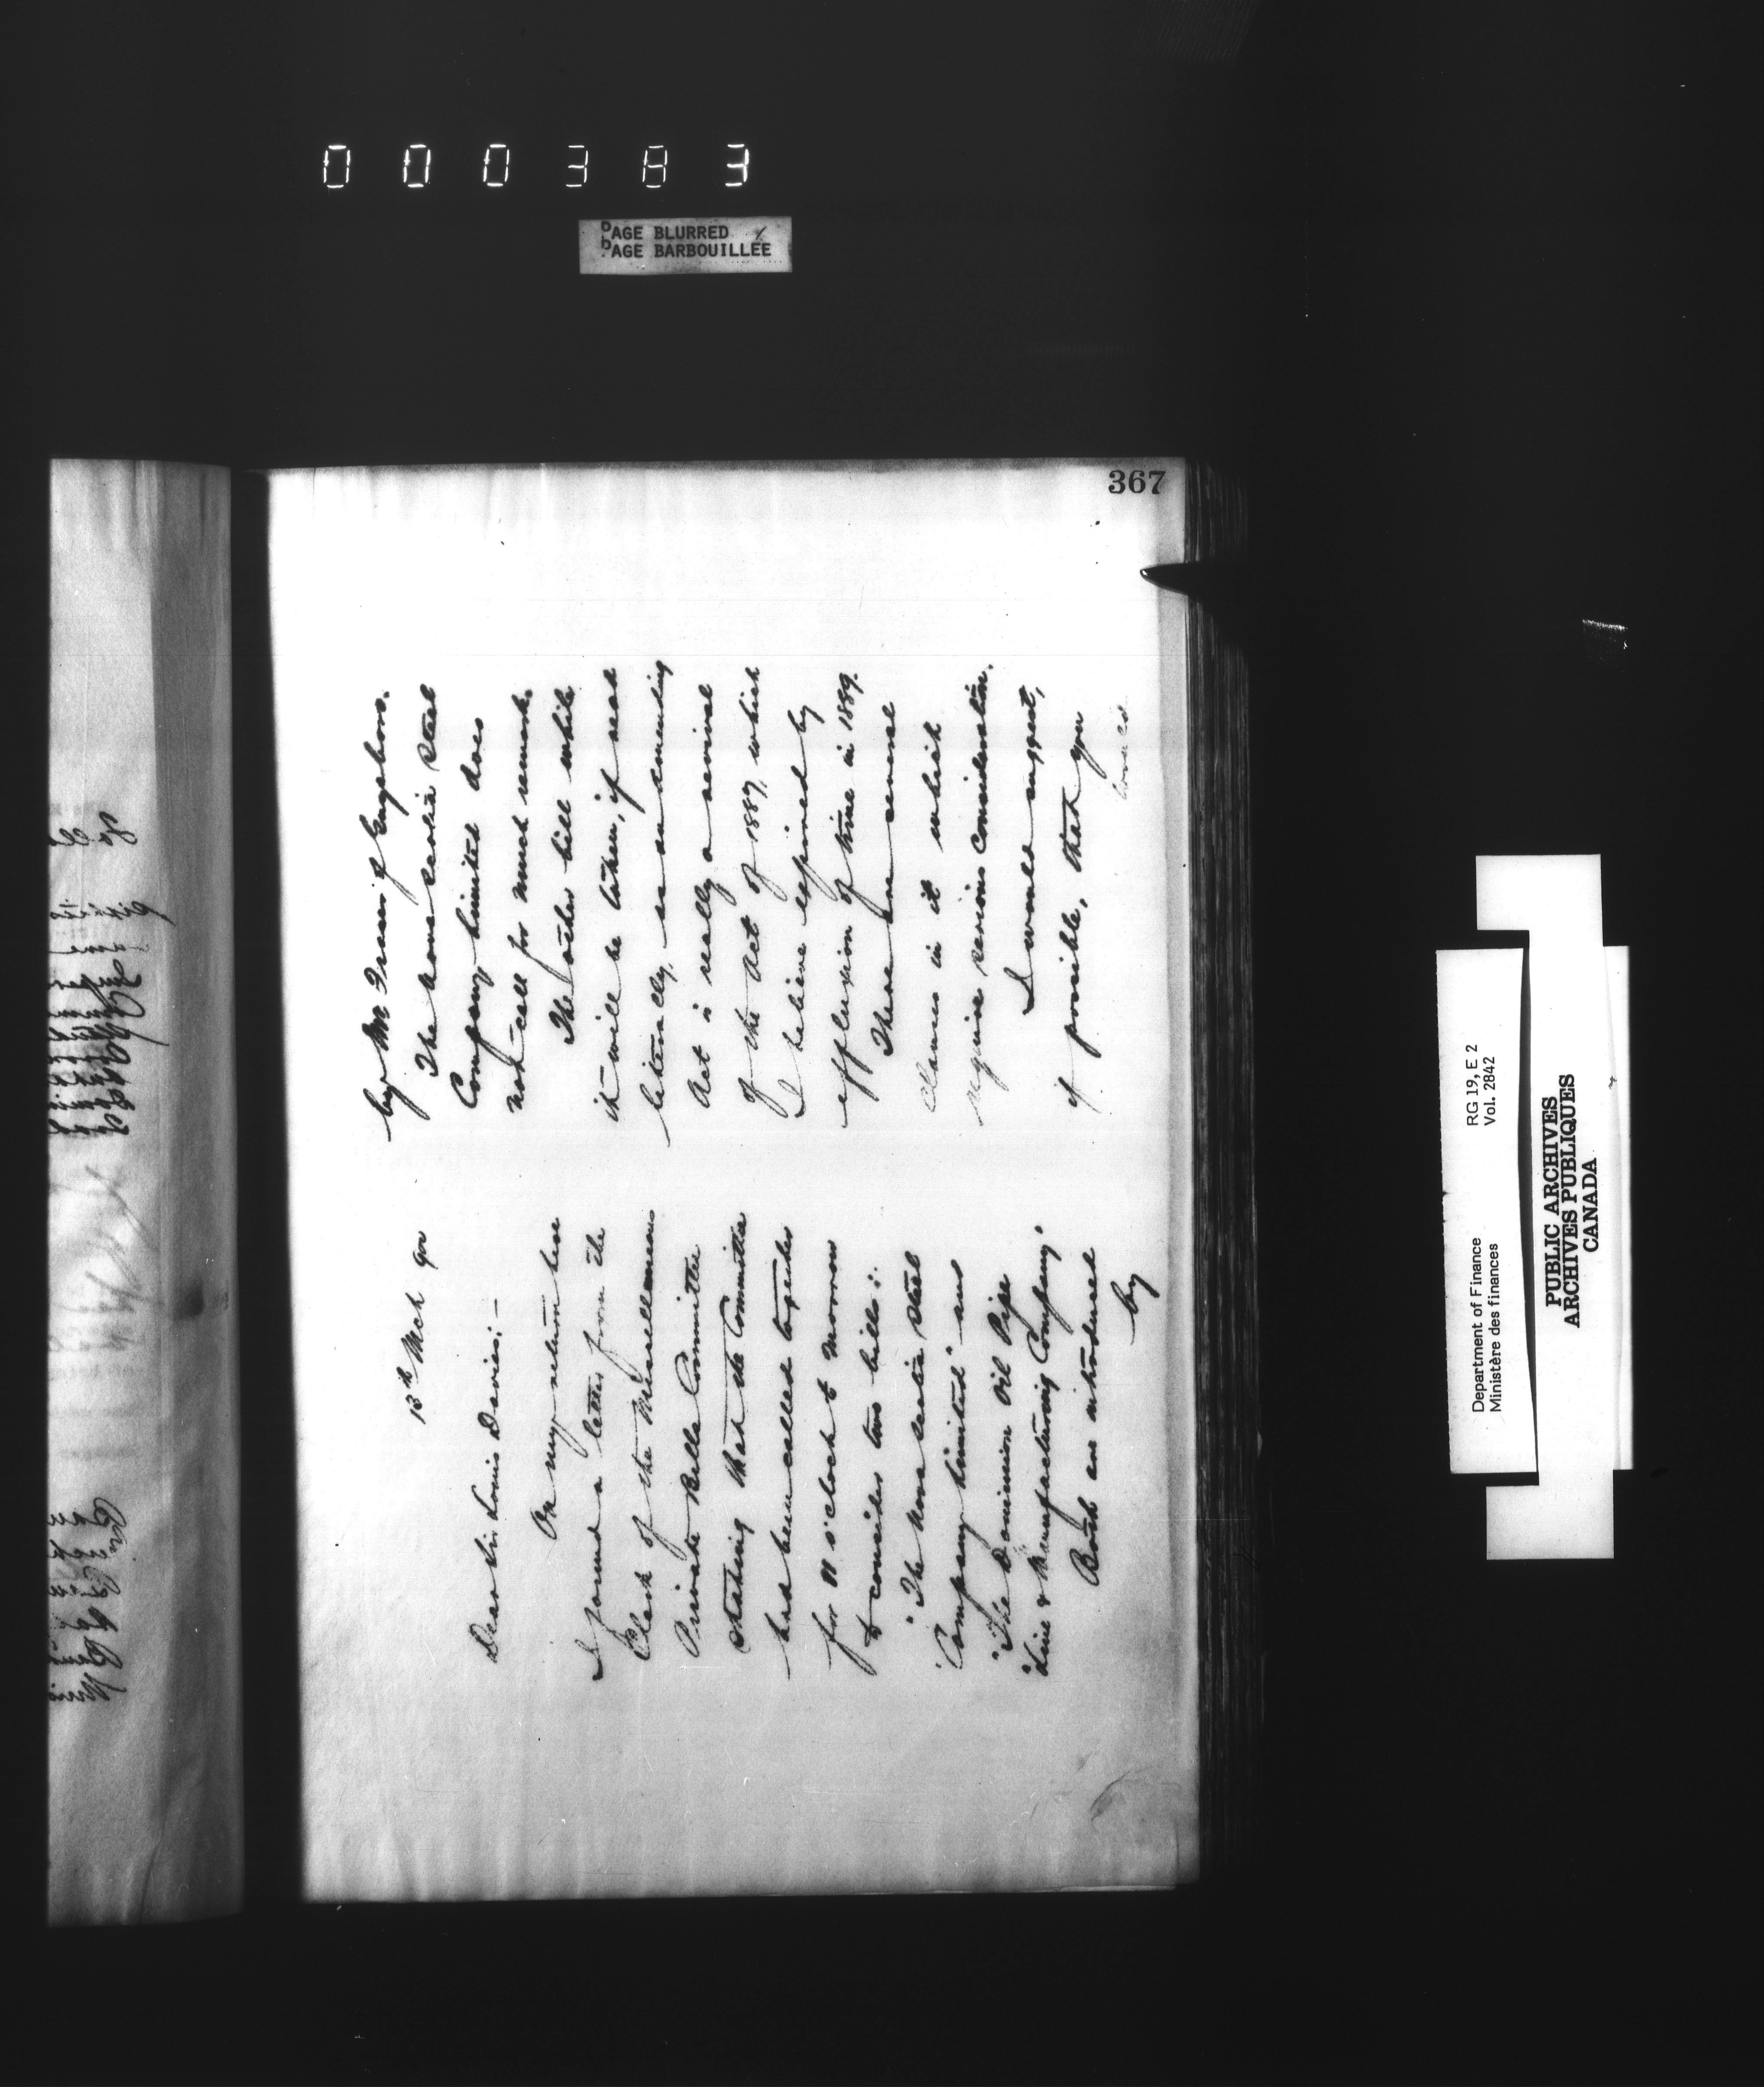 000383
PAGE BLURRED
PAGE BARBOUILLEE
367
13th Mch 900
Dear Sir Louis Davies:—
On my return here
I found a letter from the
Clerk of the Miscellaneous
Private Bills Committee
stating that the Committee
had been called together
for 11 o'clock to morrow
to consider two bills:
"The Nova Scotia Steel
"Company limited" and
"The Dominion Oil Pipe
"Line & Manufacturing Company."
Both are introduced
by
by Mr Fraser of Guysboro.
The Nova Scotia Steel
Company limited does
not call for much remark.
The other bill while
it will be taken, if read
literally, as an amending
Act is really a revival
of the Act of 1887, which
I believe expired by
effluxion of time in 1889.
There are several
clauses in it which
require serious consideration.
I would suggest,
if possible, that you
Department of Finance
Ministère des finances
RG 19, E 2
Vol. 2842
PUBLIC ARCHIVES
ARCHIVES PUBLIQUES
CANADA